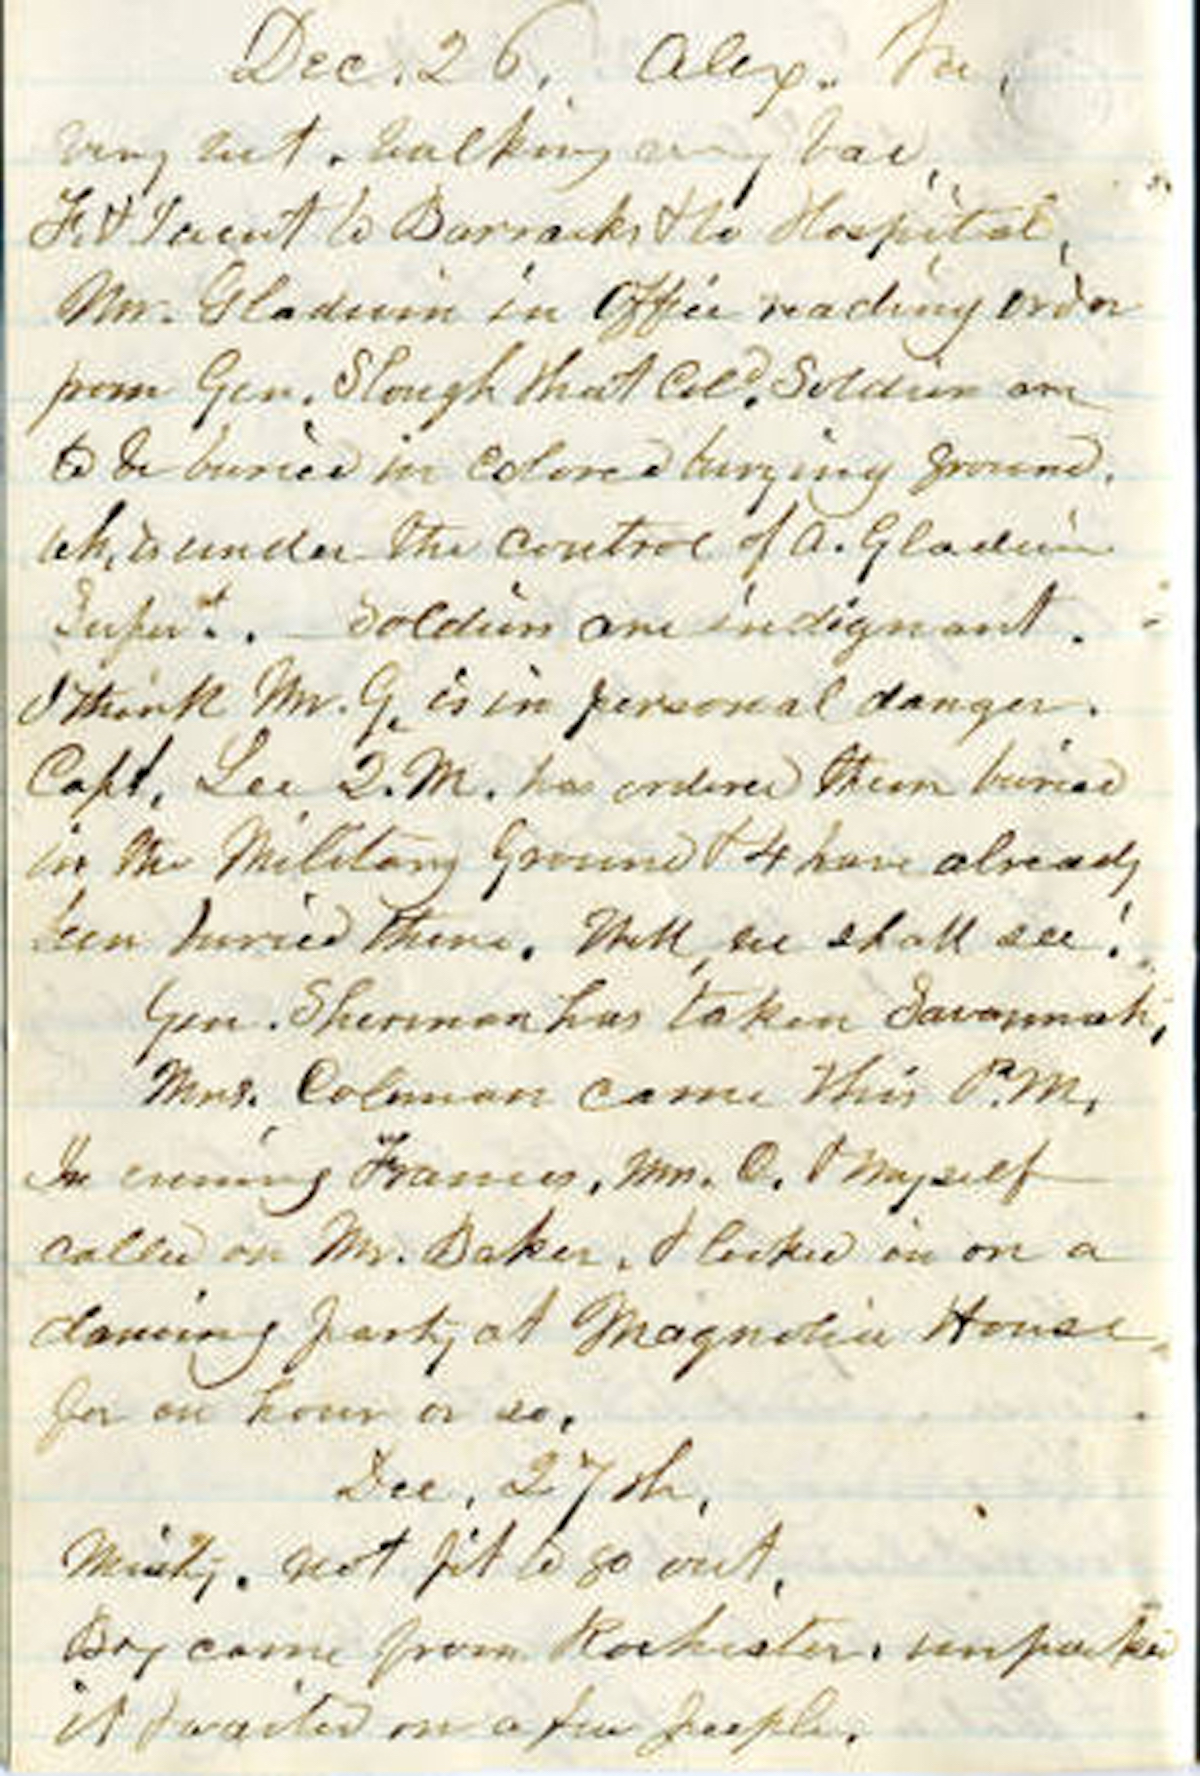 Dec. 26. Alex. Va.
very wet. walking very bad,
F. & I went to Barracks & to Hospital,
Mr. Gladwin in Office reading order
from Gen. Slough that Cold. Soldiers are
to be buried in Colored burying ground.
wh, is under the control of A. Gladwin
Supert. . — Soldiers are indignant.
I think Mr. G. is in personal danger.
Capt. Lee Q.M. has ordered them buried
in the Military Ground & 4 have already
been buried there. Well, we shall see!
Gen. Sherman has taken Savannah,
Mrs. Coleman came this P.M,
In evening Frances, Mrs. C. & Myself
called on Mr. Baker, & looked in on a
dancing party at Magnolia House
for an hour or so.
Dec, 27th,
Misty. not fit to go out,
Box came from Rochester. unpacked
it & waited on a few people.